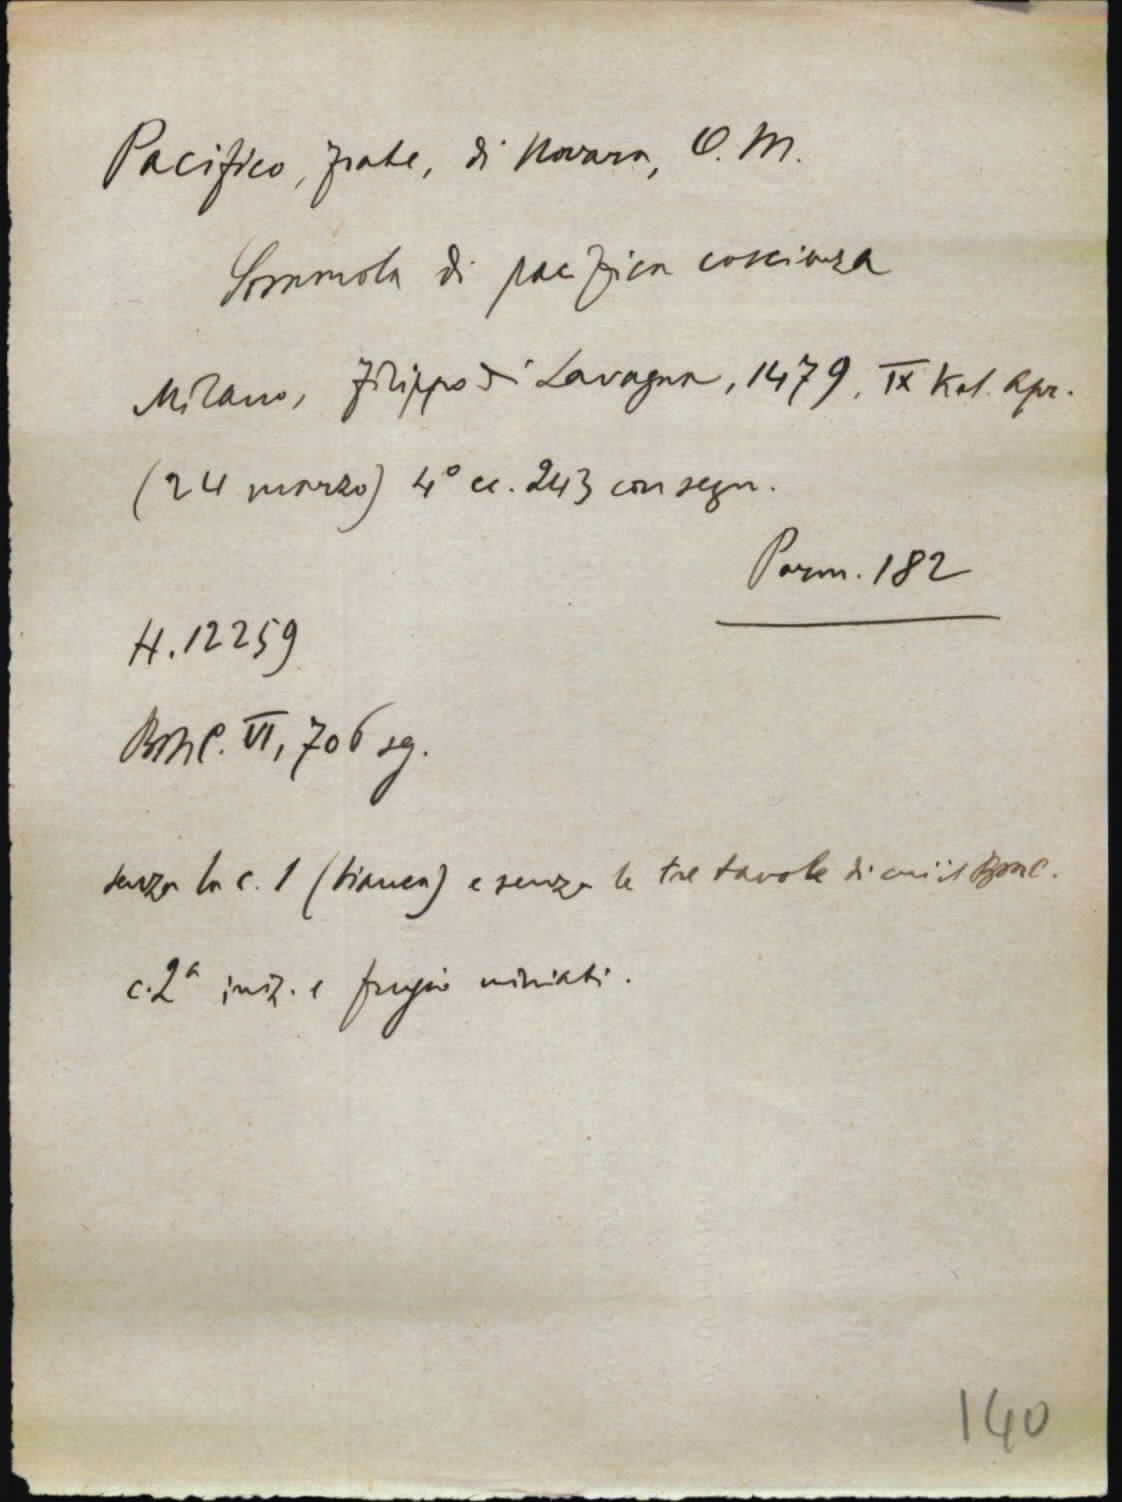 Pacifico, frate, di Novara, O. M.
Sommola di pacifica coscienza
Milano, Filippo di Lavagna, 1479, IX Kal. Apr.
(24 marzo) 4° cc. 243 con segn.
Parm. 182
H. 12259
BMC. VI, 706 sg.
senza la c. 1 (bianca) e senza le tre tavole di cui il BMC.
c. 2ª iniz. e fregio miniati.
140